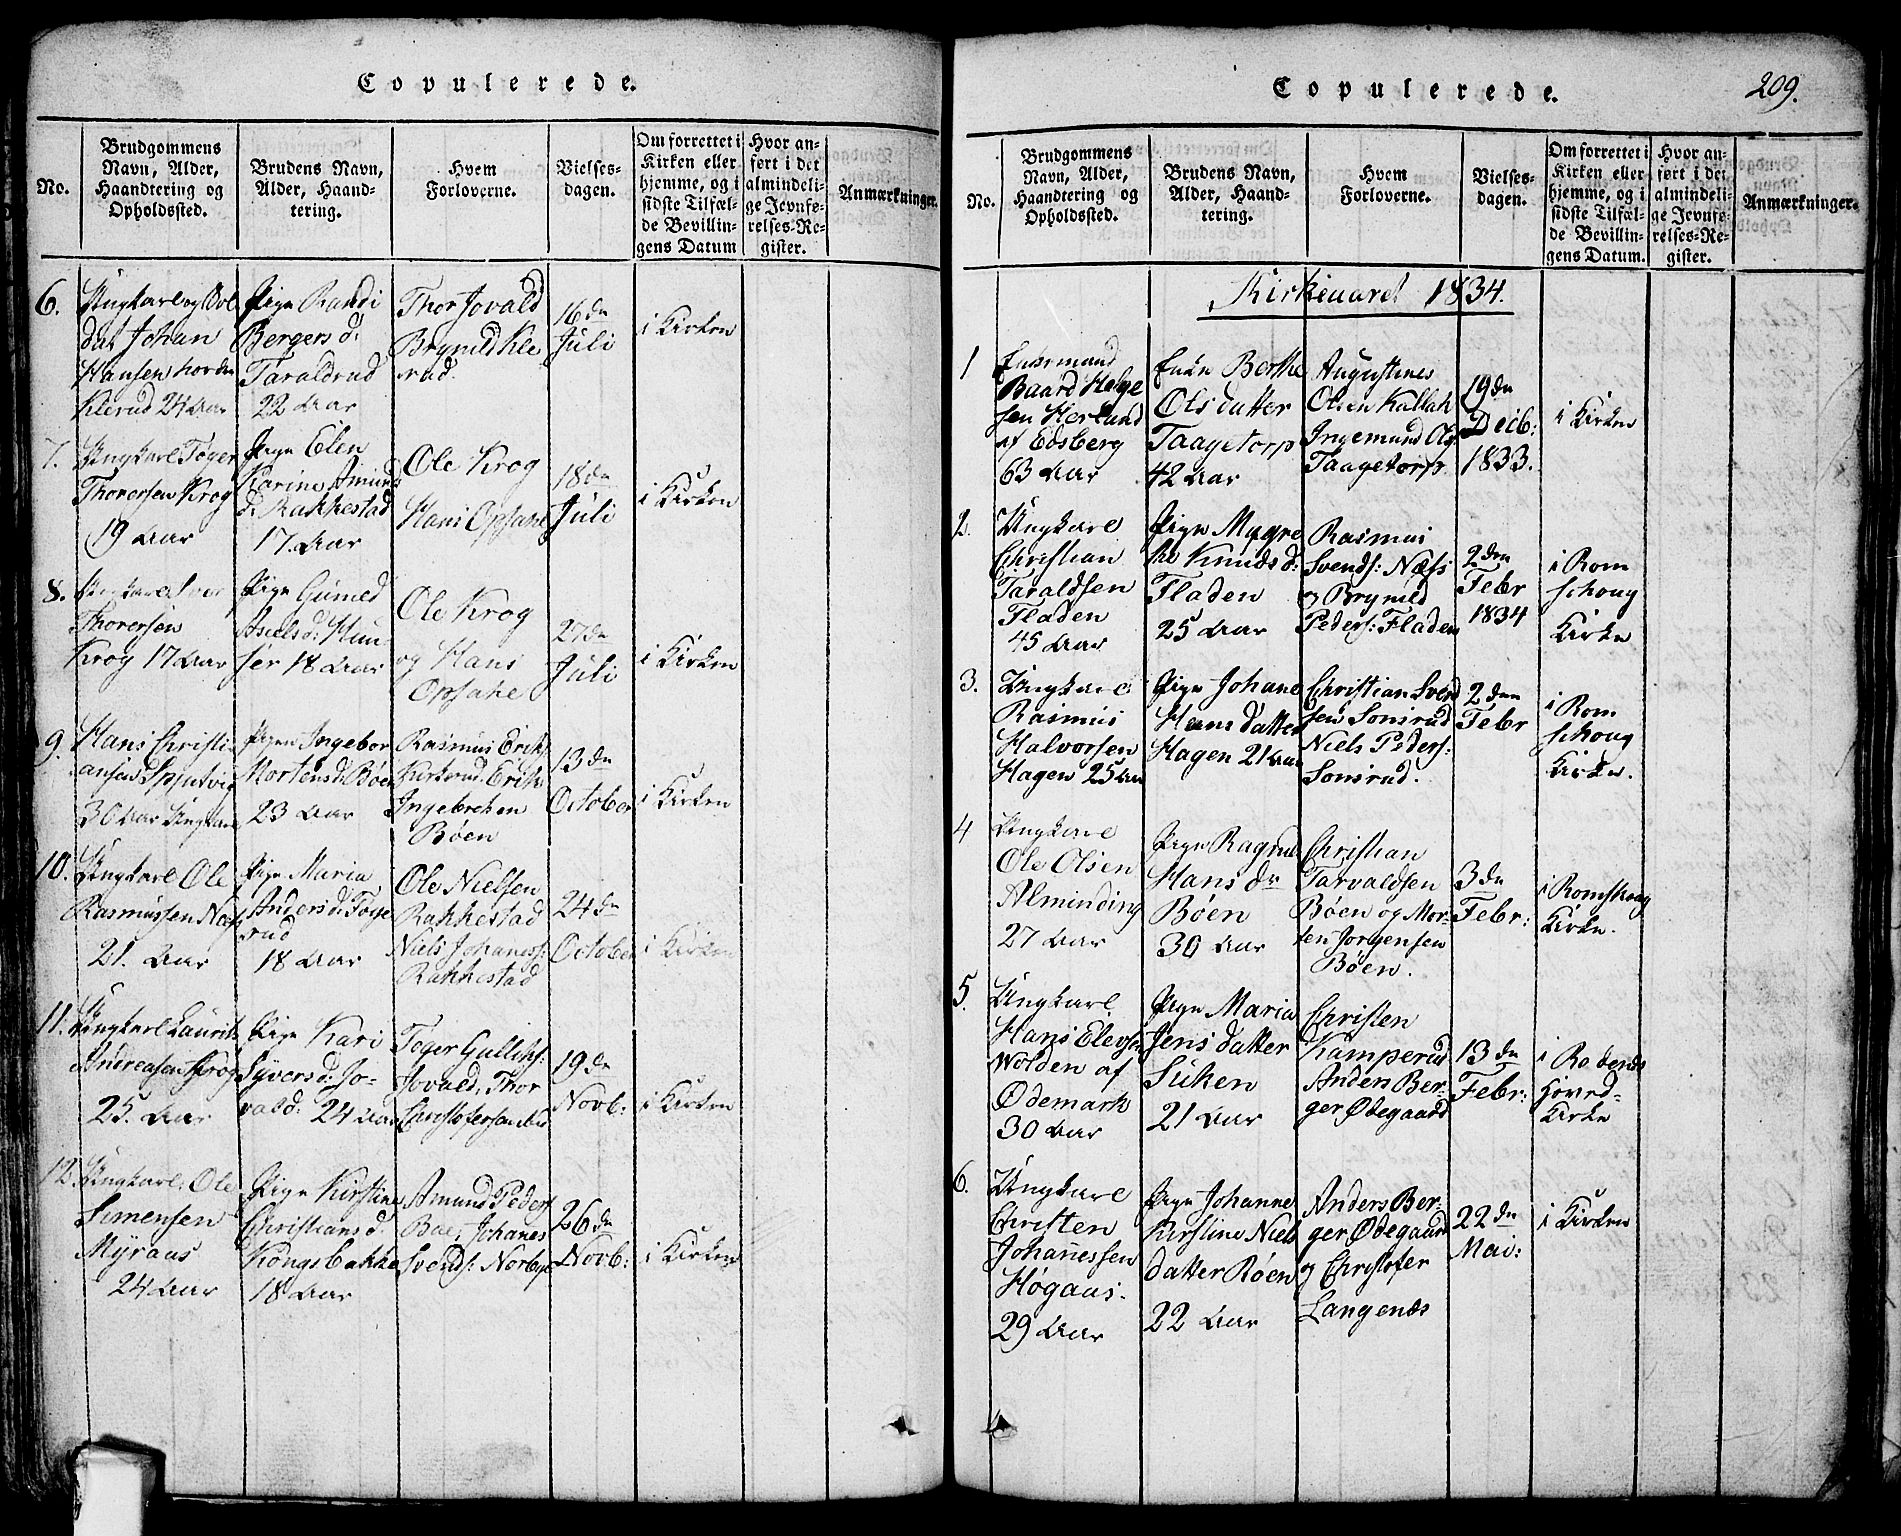 Copulerede.
No.
Brudgommens
Navn, Alder,
Haandtering og
Opholdssted.
Brudens Navn,
Alder, Haand-
tering.
Hvem
Forloverne.
Vielses-
dagen.
Om forrettet i
Kirken eller
hjemme, og i
sidste Tilfæl-
de Bevillin-
gens Datum
Hvor an-
ført i det
almindeli-
ge Jevnfø-
relses-Re-
gister.
Anmærkninger.
6.
Ungkarl og Sol
dat Johan
Hansen
Klerud 24 Aar
Pige Randi
Bergers d:
Taraldrud
22 Aar
Thor Jovald
Brynild Kle
rud.
16 de
Juli
i Kirken
7.
Ungkarl Tøger
Thorersen Krog
19 Aar
Pige Elen
Karine Amunds
d. Rakkestad
17. Aar
Ole Krog
Hans Opsahl
18 de
Juli
i Kirken
8.
Ungkarl Iver
Thorersen
Krog 17 Aar
Pige Guned
Axels d: Hun
ser 18 Aar
Ole Krog
og Hans
Opsahl
27 de
Juli
i Kirken
9.
Hans Christi-
ansen Spjutvig
30 Aar Ungkarl
Pigen Ingebor
Mortensd: Bøen
23 Aar
Rasmus Eriks
Kirkerud. Erik
Ingebretsen
Bøen
13 de
October
i Kirken
10.
Ungkarl Ole
Rasmussen Næss
21. Aar
Pige Maria
Anders d: Toge
rud
18 Aar
Ole Nielsen
Rakkestad
Niels Johaness:
Rakkestad
24 de
October
i Kirken
11.
Ungkarl Laurits
Andreasen Krog
25. Aar
Pige Kari
Syvers d: Jo-
vald: 24 Aar
Toger Gulliks:
Jovald, Thor
Christofersen
19 de
Novb:
i Kirken
12.
Ungkarl. Ole
Simensen
Myraas
24 Aar
Pige Kirstine
Christians d.
Kongsbakke
18 Aar
Amund Peders
Baer, Johanes
Svends: Norbye
26 de
Novb:
i Kirken
Copulerede.
209.
No.
Brudgommens
Navn, Alder,
Haandtering og
Opholdssted.
Brudens Navn,
Alder, Haand-
tering.
Hvem
Forloverne.
Vielses-
dagen.
Om forrettet i
Kirken eller
hjemme, og i
sidste Tilfæl-
de Bevillin-
gens Datum.
Hvor an-
ført i det
almindeli-
ge Jevnfø-
relses-Re-
gister.
Anmærkninger.
Kirkeaaret 1834.
1
Enkemand
Baard Helge
sen Herland
af Edsberg
63 Aar
Enke Berthe
Ols datter
Taagetorp
42 Aar
Augustenes
Olsen Kallak
Ingemund Ols
Taagetorp.
19 de
Decb:
1833.
i Kirken
2.
Ungkarl
Christian
Taraldsen
Fladen
45 Aar
Pige Mygre
the Knuds d:
Fladen
25 Aar
Rasmus
Svends: Næss
og Brynild
Peders: Fladen
2 den
Febr
1834
i Rom
schoug
Kirke
3.
Ungkarl
Rasmus
Halvorsen
Hagen 25 Aar
Pige Johane
Hans datter
Hagen 21 Aar
Christian Svend
sen Sonsrud
Niels Peders:
Sonsrud.
2 den
Febr
i Rom
schoug
Kirke.
4
Ungkarl
Ole Olsen
Alminding
27 Aar
Pige Ragnil
Hans dr
Bøen
30 Aar
Christian
Tarvaldsen
Bøen og Mor-
ten Jorgensen
Bøen.
3 de
Febr:
i Romskoug
Kirke.
5.
Ungkarl.
Hans Elevsen
Wolden af
Ødemark
30 Aar
Pige Maria
Jens datter
Suken
21 Aar
Christen
Kamperud
Anders Ber-
ger Ødegaard
13 de
Febr:
i Rødenæs
Hoved-
Kirke
6.
Ungkarl
Christen
Johanessen
Høgaas.
29 Aar
Pige Johanne
Kirstine Niels
datter Røen
22 Aar
Anders Ber-
ger Ødegaard
og Christofer
Langenæs
22 de
Mai:
i Kirken